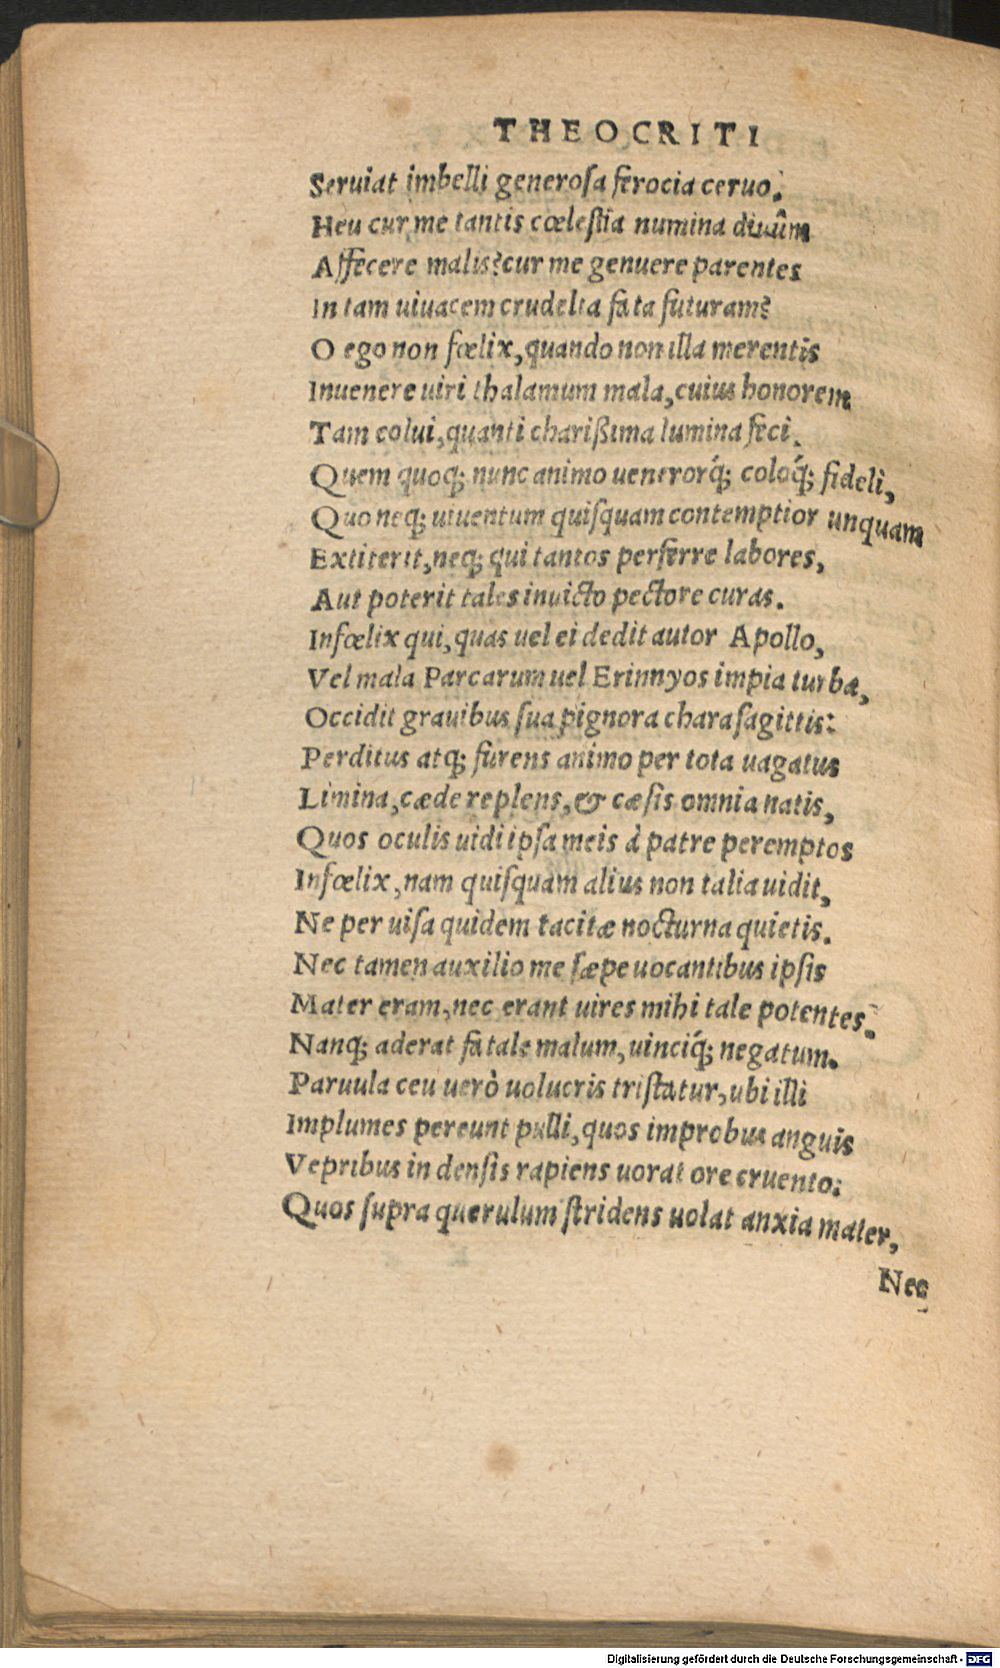 THEOCRITI
Seruiat imbelli generosa ferocia ceruo.
Heu cur me tantis cœlestia numina diuûm
Affecere malis? cur me genuere parentes
In tam uiuacem crudelia fata futuram?
O ego non fœlix, quando non illa merentis
Inuenere uiri thalamum mala, cuius honorem
Tam colui, quanti charißima lumina feci.
Quem quoq; nunc animo uenerorq́; coloq́; fideli,
Quo neq; uiuentum quisquam contemptior unquam
Extiterit, neq; qui tantos perferre labores,
Aut poterit tales inuicto pectore curas.
Infœlix qui, quas uel ei dedit autor Apollo,
Vel mala Parcarum uel Erinnyos impia turba,
Occidit grauibus sua pignora chara sagittis:
Perditus atq; furens animo per tota uagatus
Limina, cæde replens, & cæsis omnia natis,
Quos oculis uidi ipsa meis à patre peremptos
Infœlix, nam quisquam alius non talia uidit,
Ne per uisa quidem tacitæ nocturna quietis.
Nec tamen auxilio me sæpe uocantibus ipsis
Mater eram, nec erant uires mihi tale potentes.
Nanq; aderat fatale malum, uinciq́; negatum.
Paruula ceu uerò uolucris tristatur, ubi illi
Implumes pereunt pulli, quos improbus anguis
Vepribus in densis rapiens uorat ore cruento:
Quos supra querulum stridens uolat anxia mater,
Nec
Digitalisierung gefördert durch die Deutsche Forschungsgemeinschaft - DFG